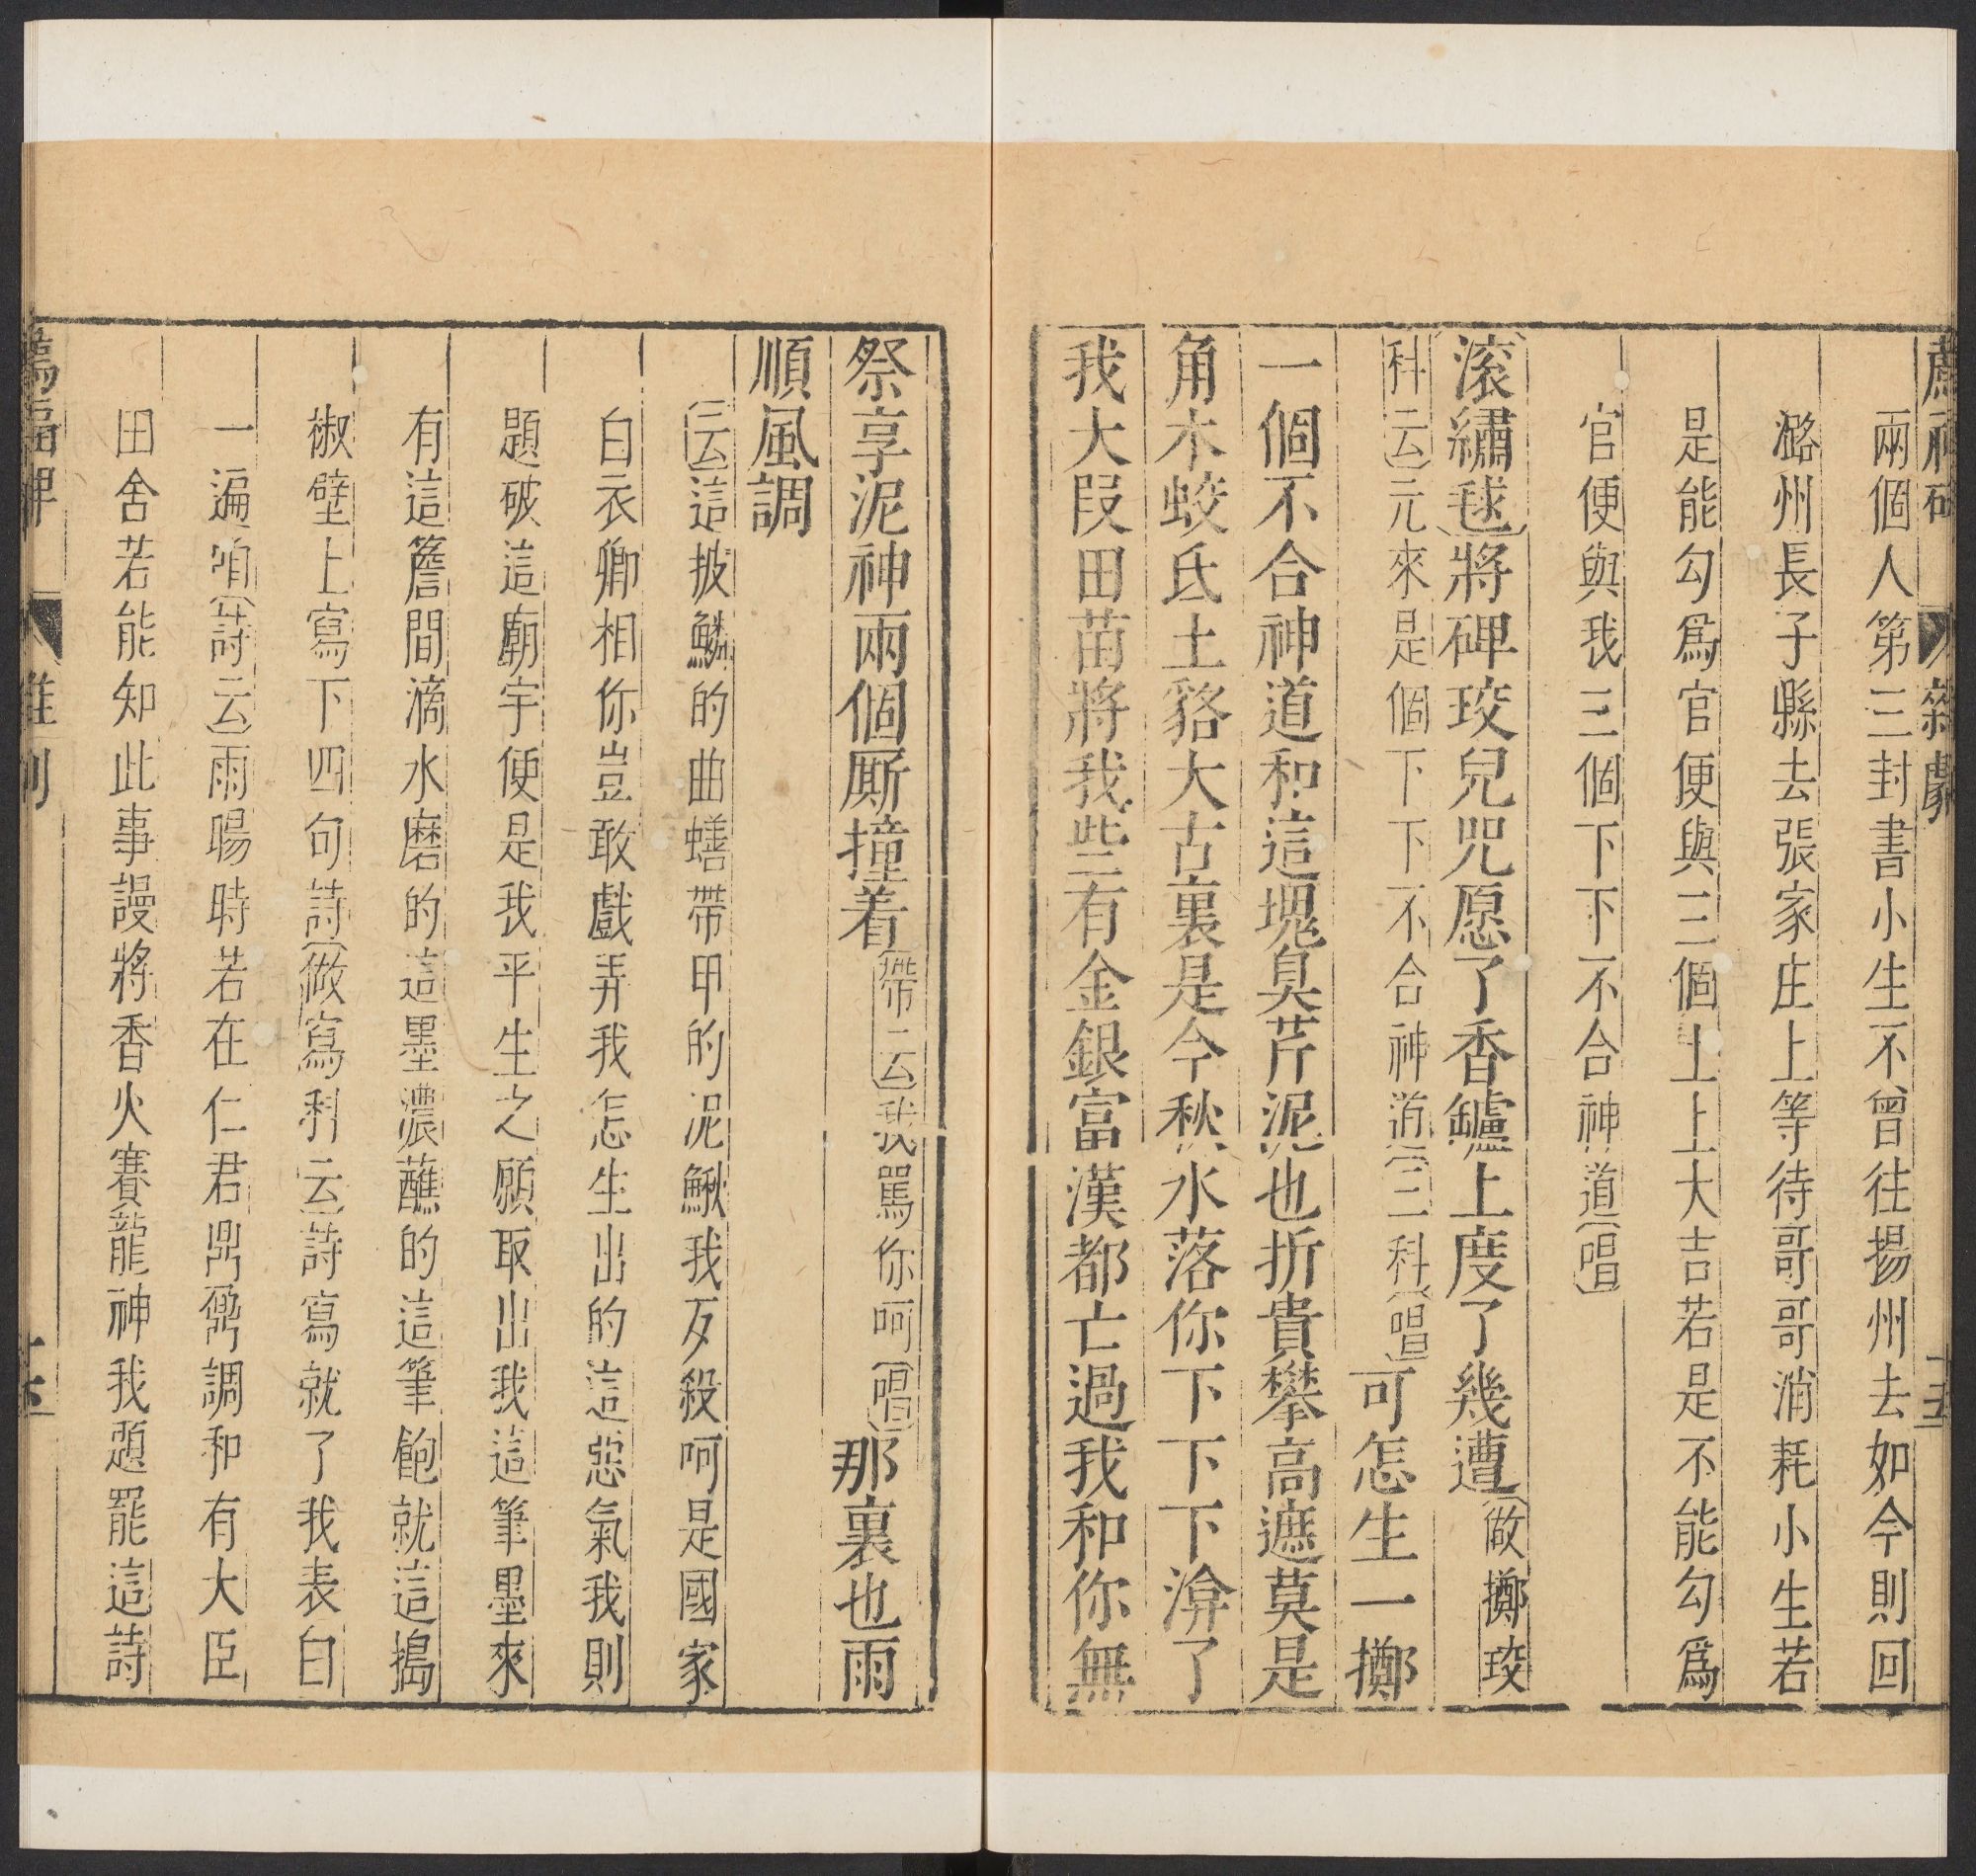 兩個人第三封書小生不曾往揚州去如今則回
潞州長子縣去張家庄上等待哥哥消耗小生若
是能勾爲官便與三個上上大吉若是不能勾爲
官便與我三個下下不合神道(唱)
(滚繡毬)將碑珓兒咒愿了香鑪上度了幾遭(做擲珓
科云)元來是個下下不合神道(三科)(唱)可怎生一擲
一個不合神道和這塊臭芹泥也折貴攀高遮莫是
角木蛟氐土貉大古裏是今秋水落你下下下渰了
我大叚田苗將我些有金銀富漢都亡過我和你無
祭享泥神兩個厮撞着(帶云)我罵你呵(唱)那裏也雨
順風調
(云)這披鱗的曲蟮帶甲的泥鰍我歹殺呵是國家
白衣卿相你豈敢戲弄我怎生出的這惡氣我則
題破這廟宇便是我平生之願取出我這筆墨來
有這簷間滴水磨的這墨濃蘸的這筆飽就這搗
椒壁上寫下四句詩(做寫科云)詩寫就了我表白
一遍咱(詩云)雨暘時若在仁君鼎鼐調和有大臣
田舍若能知此事謾將香火賽龍神我題罷這詩
薦福碑 雜劇